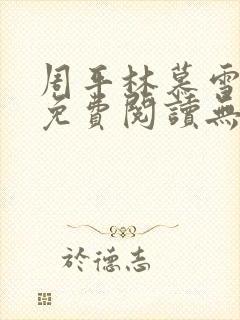 周平林慕雪
免費閱讀無
於德志